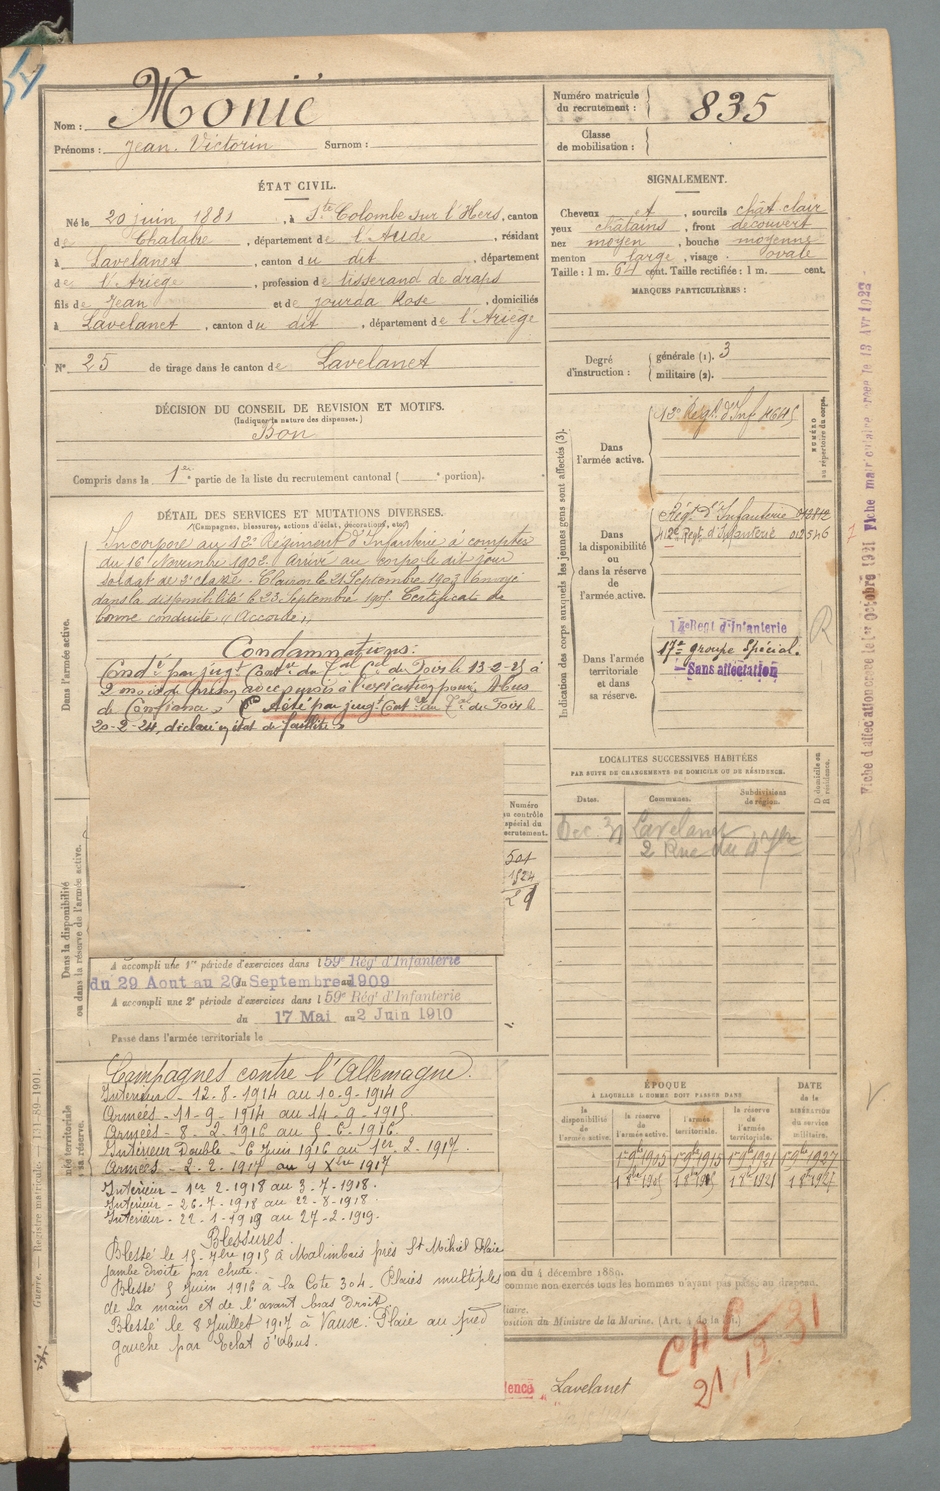 Nom : Monié
Prénoms : Jean Victorin Surnom :
Numéro matricule du recrutement : 835
Classe de mobilisation :
ÉTAT CIVIL.
Né le 20 juin 1881, à Ste Colombe sur l'Hers, canton
de Chalabre, département de l'Aude, résidant
à Lavelanet, canton du dit, département
de l'Ariège, profession de tisserand de draps
fils de Jean et de Jourda Rose, domiciliés
à Lavelanet, canton du dit, département de l'Ariège
N° 25 de tirage dans le canton de Lavelanet
SIGNALEMENT.
Cheveux et, sourcils chât. clair
yeux châtains, front découvert
nez moyen, bouche moyenne
menton large, visage ovale
Taille : 1 m. 64 cent. Taille rectifiée : 1 m. cent.
MARQUES PARTICULIÈRES :
Degré d'instruction : générale (1). 3
militaire (2).
DÉCISION DU CONSEIL DE REVISION ET MOTIFS.
(Indiquer la nature des dispenses.)
Bon
Compris dans la 1re partie de la liste du recrutement cantonal ( portion).
DÉTAIL DES SERVICES ET MUTATIONS DIVERSES.
(Campagnes, blessures, actions d'éclat, décorations, etc.)
Dans l'armée active.
Incorporé au 12e Régiment d'Infanterie à compter
du 16 Novembre 1902. Arrivé au corps le dit jour
soldat de 2e classe. Clairon le 21 Septembre 1903. Envoyé
dans la disponibilité le 23 Septembre 1905. Certificat de
bonne conduite "Accordé"
Condamnations :
Condé par jugt Contre du Cel de Foix le 13-2-25 à
2 mois de prison avec sursis à l'exécution pour Abus
de Confiance. A été par jugt du de Foix le
20-2-24, déclaré en état de faillite.
Dans la disponibilité ou dans la réserve de l'armée active.
Numéro au contrôle spécial du recrutement.
A accompli une 1re période d'exercices dans l 59e Rég' d'Infanterie
du 29 Aout au 20 Septembre 1909
A accompli une 2e période d'exercices dans l 59e Rég' d'Infanterie
du 17 Mai au 2 Juin 1910
Passé dans l'armée territoriale le
Campagnes contre l'Allemagne.
Intérieur - 12-8-1914 au 10-9-1914
Armées - 11-9-1914 au 14-9-1915
Armées - 8-2-1916 au 5-6-1916
Intérieur Double - 6 Juin 1916 au 1er-2-1917.
Armées - 2-2-1917 au 4 Xbre 1917
Intérieur - 1er 2-1918 au 3-7-1918.
Intérieur - 26-7-1918 au 22-8-1918.
Intérieur - 22-1-1919 au 27-2-1919.
Blessures.
Blessé le 15-7bre 1915 à Malimbois près St Mihiel Plaie
jambe droite par chute.
Blessé 5 Juin 1916 à la Cote 304. Plaies multiples
de la main et de l'avant bras Droit.
Blessé le 8 Juillet 1917 à Vaux : Plaie au pied
gauche par Eclat d'obus.
Indication des corps auxquels les jeunes gens sont affectés (3).
NUMÉRO au répertoire du corps.
Dans l'armée active.
12e Régt d'Inf 4645
Dans la disponibilité ou dans la réserve de l'armée active.
Régt d'Infanterie
Régt d'Infanterie 012546
Dans l'armée territoriale et dans sa réserve.
14e Régt d'Infanterie
17e groupe Spécial.
Sans affectation
R
LOCALITES SUCCESSIVES HABITÉES
PAR SUITE DE CHANGEMENTS DE DOMICILE OU DE RÉSIDENCE.
Dates. Communes. Subdivisions de région. D domicile ou R résidence.
Dec Lavelanet
2 Rue du 4 7bre
ÉPOQUE
À LAQUELLE L'HOMME DOIT PASSER DANS
la disponibilité de l'armée active. la réserve de l'armée active. l'armée territoriale. la réserve de l'armée territoriale.
DATE de la LIBÉRATION du service militaire.
1 9bre 1905 1 9bre 1915 1 9bre 1921 1 9bre 1927
1 8bre 1905 1 8bre 1915 1 8bre 1921 1 8bre 1927
on du 4 décembre 1889.
comme non exercés tous les hommes n'ayant pas passé au drapeau.
position du Ministre de la Marine. (Art. 4 de la loi.)
Lavelanet
21.12.31
Fiche d'affectation créée le 1er Octobre 1921 Fiche matriculaire créée le 13 Avr 1923
Guerre. — Registre matricule. — 131-89-1901.